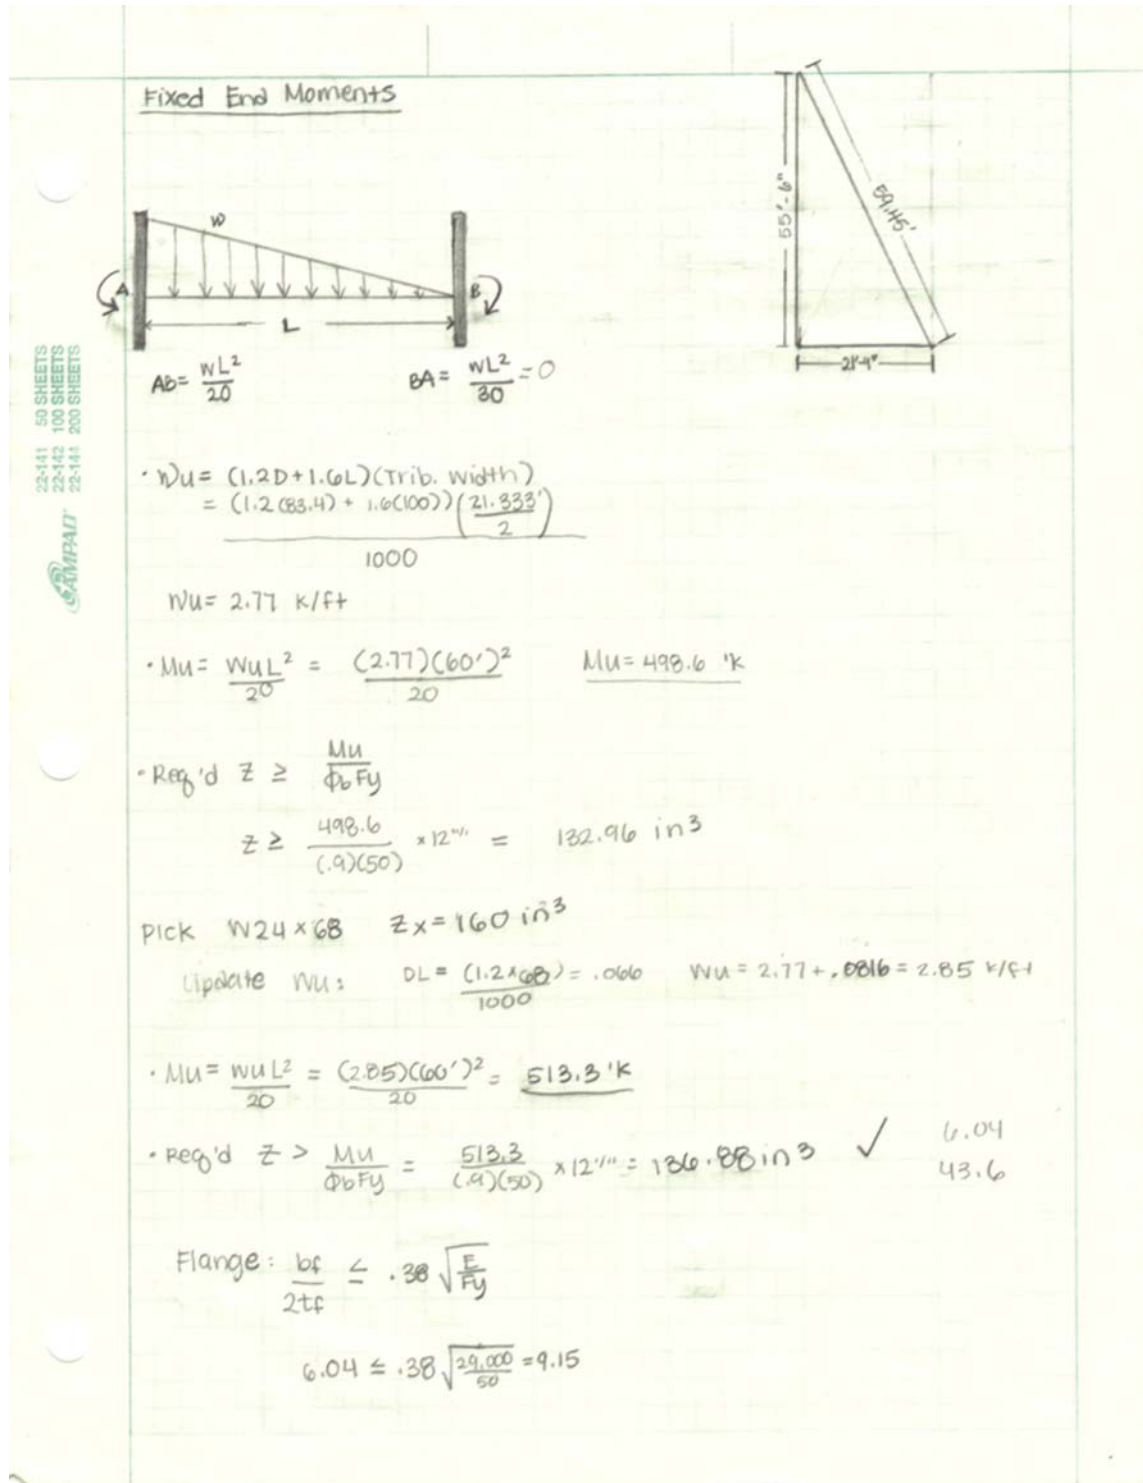 Fixed End Moments
55'-6"
59.45'
21'-4"
w
A
B
L
AB = wL²/20
BA = wL²/30 = 0
22-141 50 SHEETS
22-142 100 SHEETS
22-144 200 SHEETS
AMPAD
• Wu = (1.2D + 1.6L)(Trib. width)
= (1.2(83.4) + 1.6(100))(21.333'/2)
1000
Wu = 2.77 k/ft
• Mu = WuL²/20 = (2.77)(60')²/20 Mu = 498.6 'k
• Req'd Z ≥ Mu/ΦbFy
Z ≥ 498.6/(.9)(50) × 12"/' = 132.96 in³
Pick W24×68 Zx = 160 in³
Update Wu: DL = (1.2×68)/1000 = .066 Wu = 2.77 + .0816 = 2.85 k/ft
• Mu = wuL²/20 = (2.85)(60')²/20 = 513.3 'k
• Req'd Z > Mu/ΦbFy = 513.3/(.9)(50) × 12"/' = 136.88 in³ ✓
6.04
43.6
Flange: bf/2tf ≤ .38√(E/Fy)
6.04 ≤ .38√(29,000/50) = 9.15